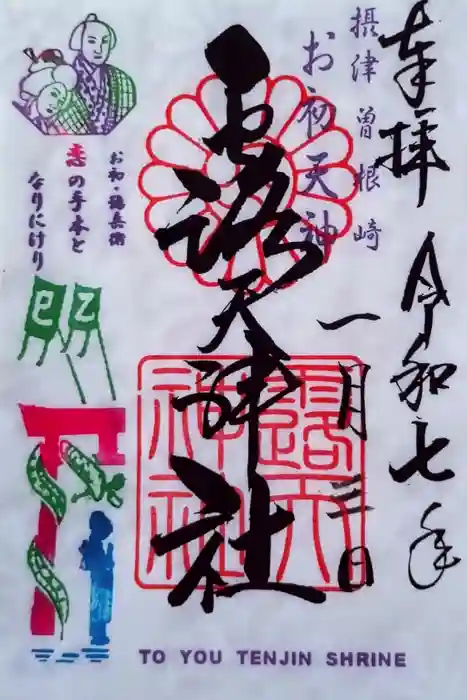 奉拝
令和七年
摂津曽根崎
お初天神
一月三日
露天神社
露天
神社
お初・徳兵衛
恋の手本と
なりにけり
乙
巳
TO YOU TENJIN SHRINE